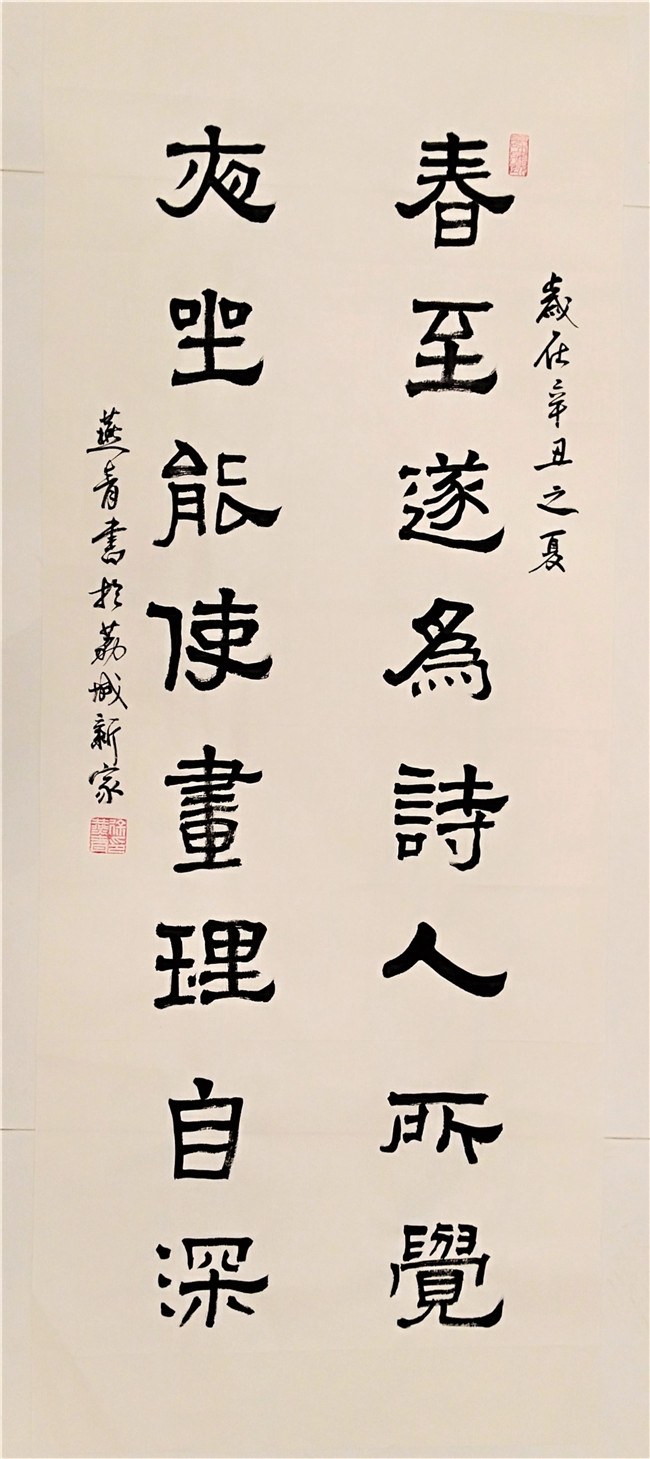 歲在辛丑之夏
春至遂為詩人所覺
夜坐能使畫理自深
燕青書於荔城新家